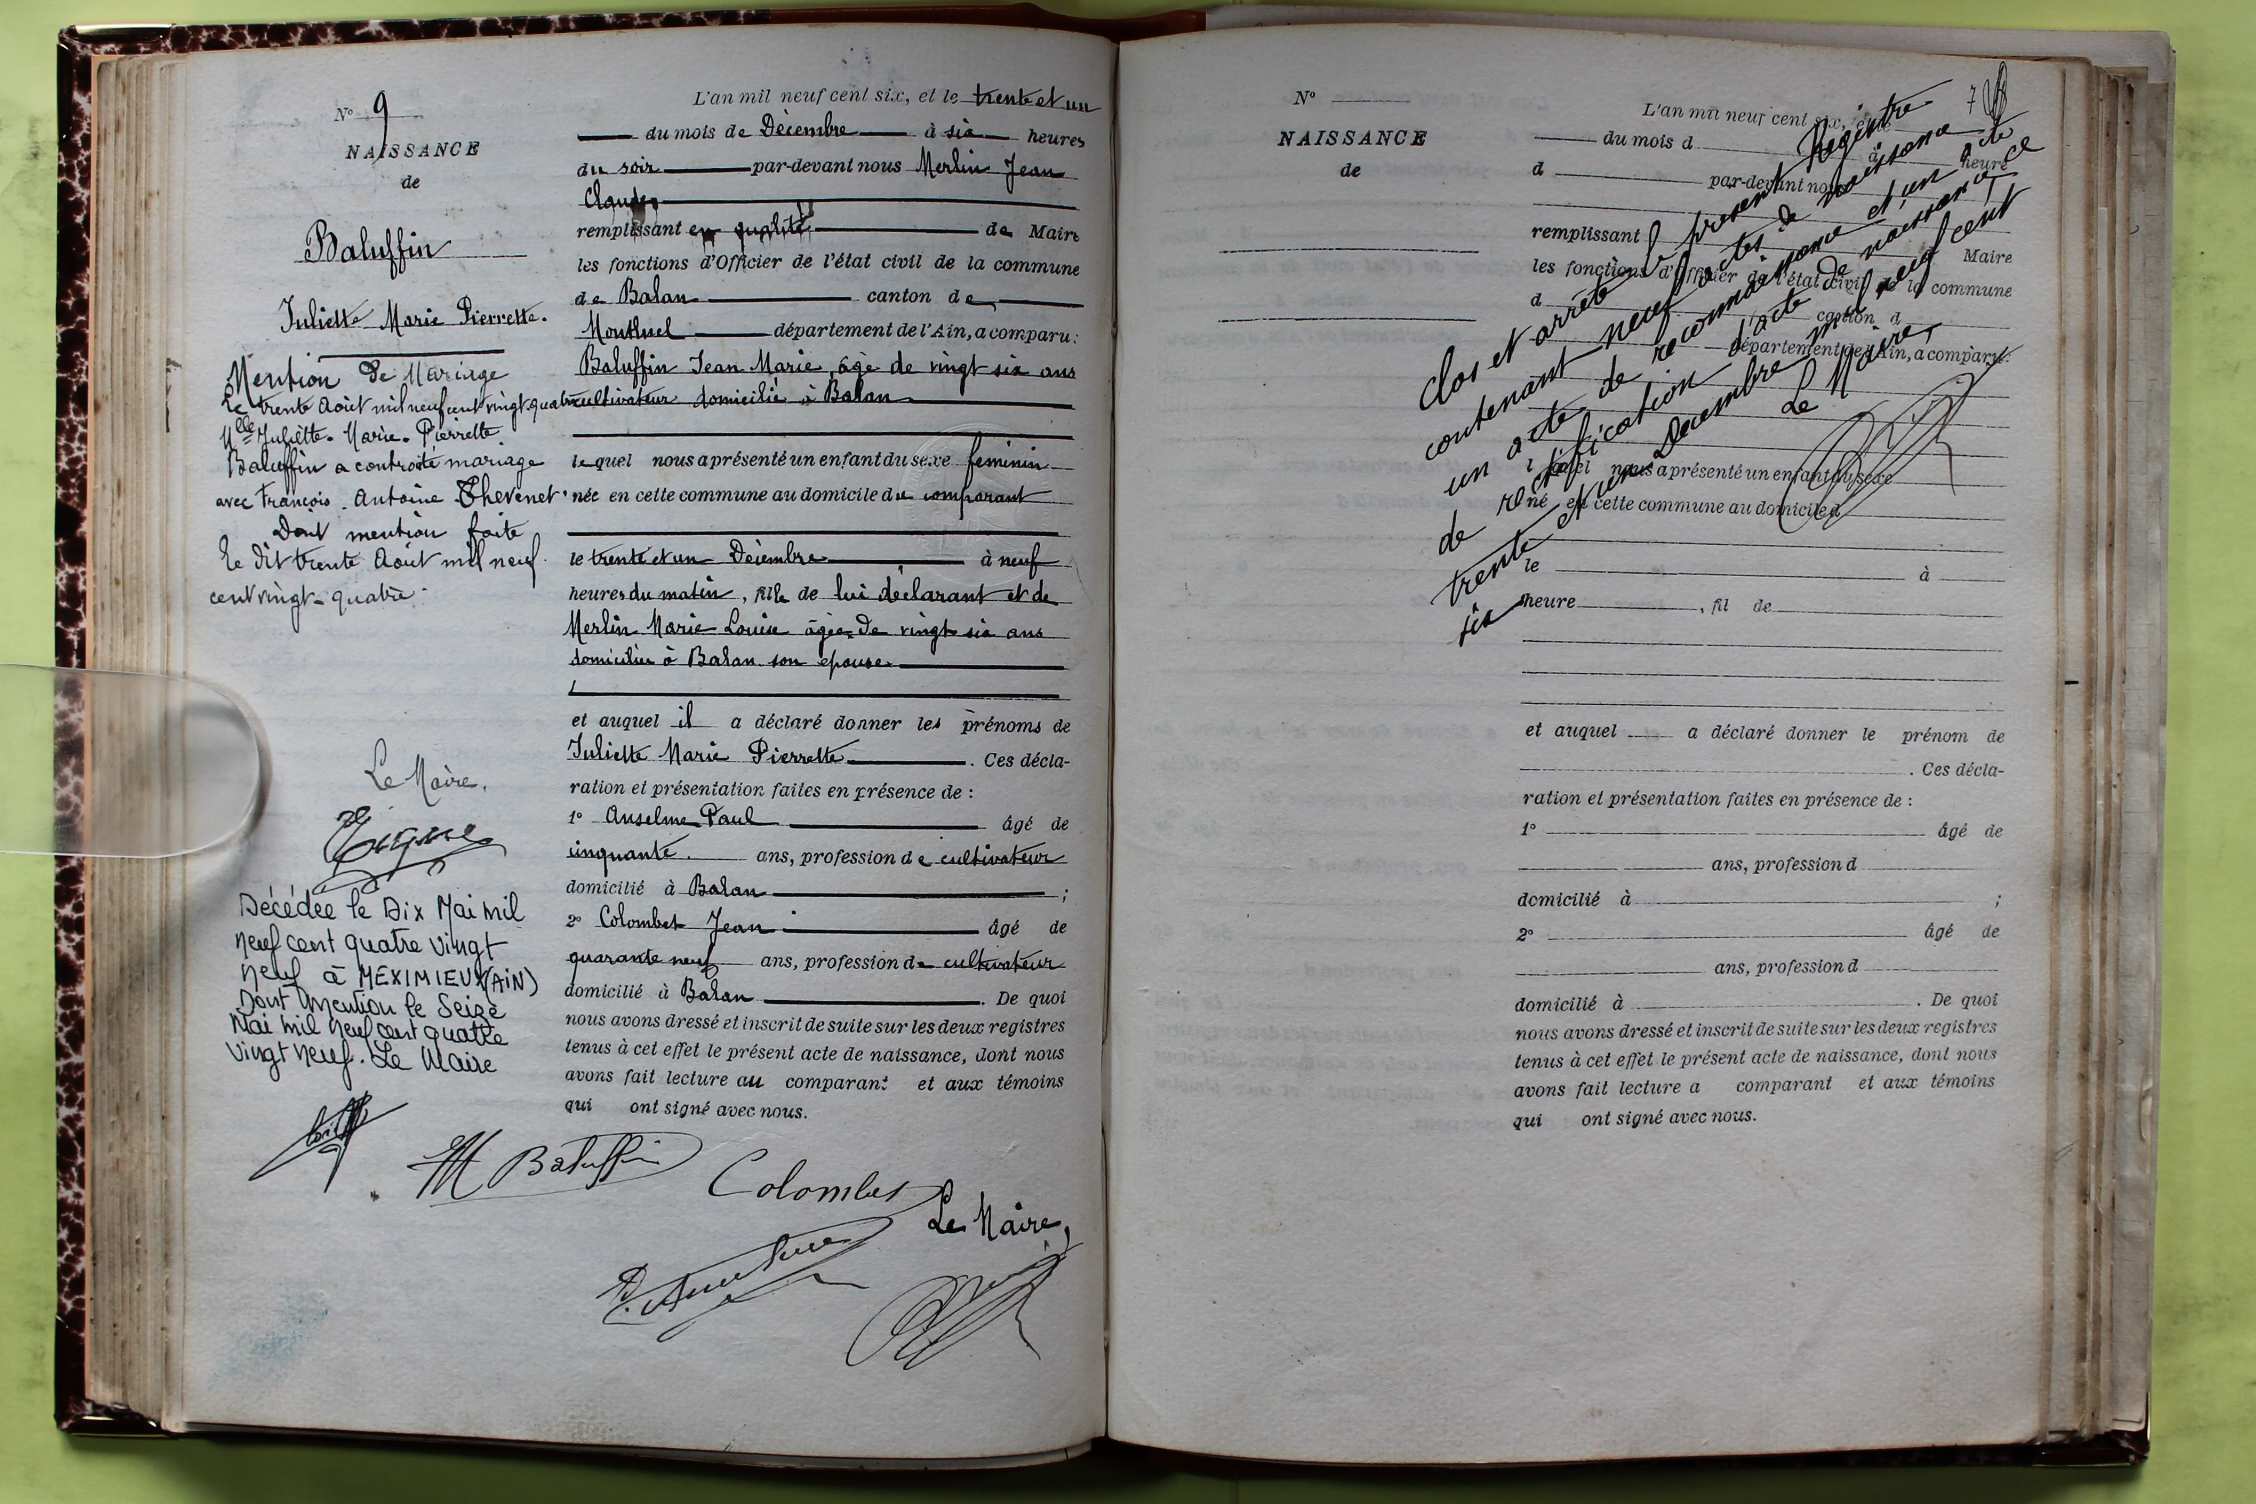 N° 9
NAISSANCE
de
Baluffin
Juliette Marie Pierrette.
Mention de Mariage
Le trente Août mil neuf cent vingt quatre
Melle Juliette. Marie. Pierrette
Baluffin a contracté mariage
avec François. Antoine Thevenet.
Dont mention faite
Le dit trente Août mil neuf
cent vingt-quatre.
Le Maire,
Décédée le Dix Mai mil
neuf cent quatre vingt
neuf à MEXIMIEUX (AIN)
Dont Mention le Seize
Mai mil neuf cent quatre
vingt neuf. Le Maire
L'an mil neuf cent six, et le trente et un
du mois de Décembre à six heures
du soir par-devant nous Merlin Jean
Claude
remplissant en qualité de Maire
les fonctions d'Officier de l'état civil de la commune
de Balan canton de
Montluel département de l'Ain, a comparu :
Baluffin Jean Marie, âgé de vingt six ans
cultivateur domicilié à Balan
lequel nous a présenté un enfant du sexe feminin
née en cette commune au domicile du comparant
le trente et un Décembre à neuf
heures du matin, fille de lui déclarant et de
Merlin Marie Louise âgée de vingt six ans
domiciliée à Balan son epouse
et auquel il a déclaré donner les prénoms de
Juliette Marie Pierrette. Ces décla-
ration et présentation faites en présence de :
1° Anselme Paul âgé de
cinquante. ans, profession de cultivateur
domicilié à Balan ;
2° Colombet Jean âgé de
quarante neuf ans, profession de cultivateur
domicilié à Balan. De quoi
nous avons dressé et inscrit de suite sur les deux registres
tenus à cet effet le présent acte de naissance, dont nous
avons fait lecture au comparant et aux témoins
qui ont signé avec nous.
M Baluffin
Colombet
Le Maire,
7
N°
NAISSANCE
de
L'an mil neuf cent six, et le
du mois d à heure
d par-devant nous
remplissant Maire
les fonctions d'Officier de l'état civil de la commune
d canton d
département de l'Ain, a comparu :
Clos et arrêté le présent Registre
contenant neuf actes de naissance
un acte de reconnaissance et un acte
de rectification d'acte de naissance ce
trente et un Décembre mil neuf cent
six
Le Maire,
l quel nous a présenté un enfant du sexe
né en cette commune au domicile d
le à
heure , fil de
et auquel a déclaré donner le prénom de
. Ces décla-
ration et présentation faites en présence de :
1° âgé de
ans, profession d
domicilié à ;
2° âgé de
ans, profession d
domicilié à . De quoi
nous avons dressé et inscrit de suite sur les deux registres
tenus à cet effet le présent acte de naissance, dont nous
avons fait lecture a comparant et aux témoins
qui ont signé avec nous.